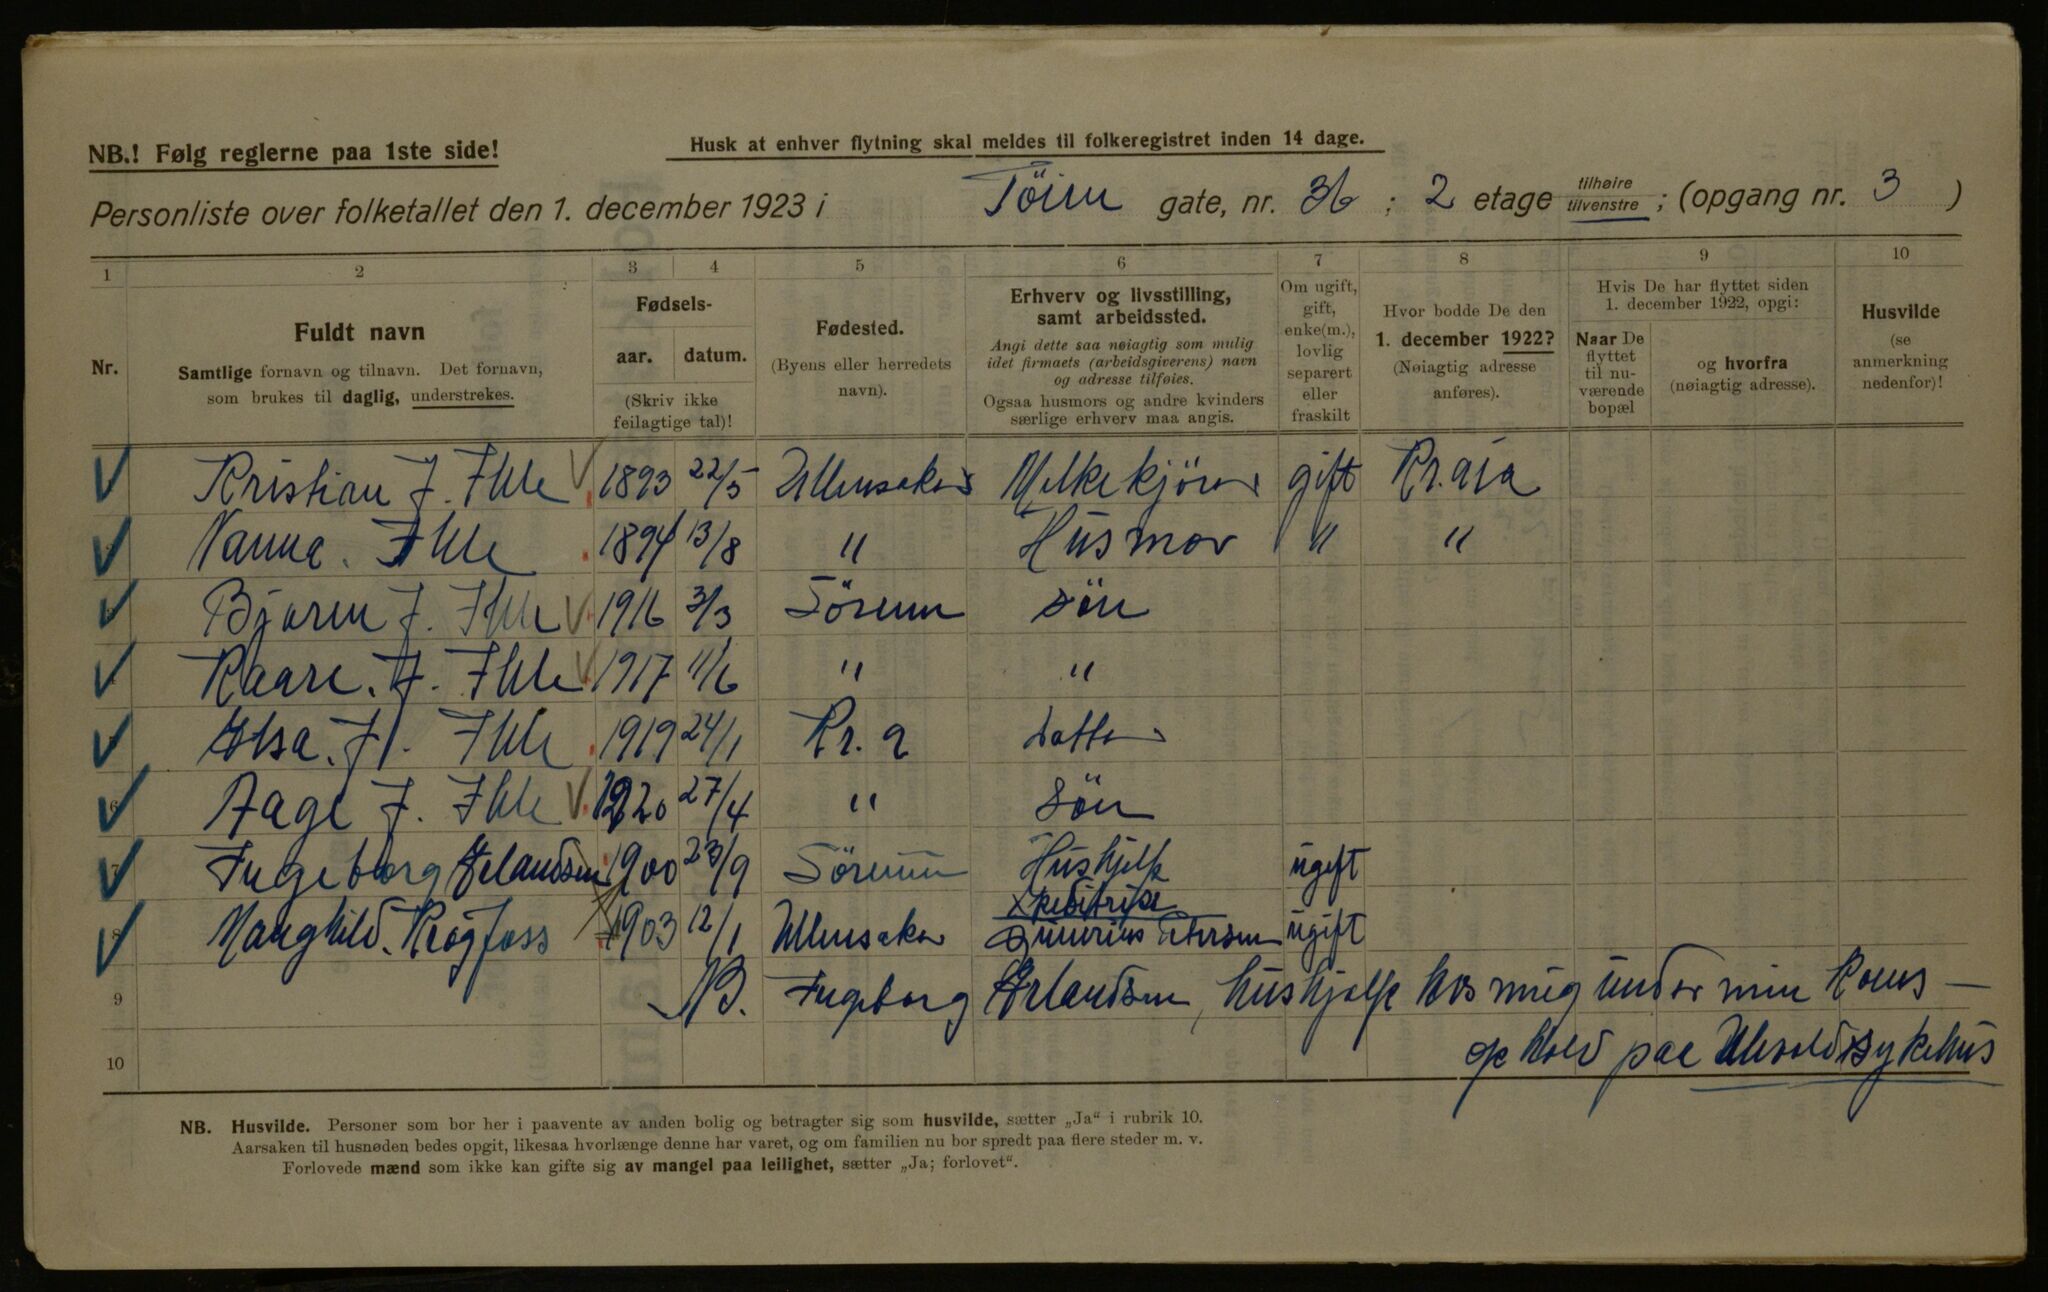 NB.! Følg reglerne paa 1ste side!
Husk at enhver flytning skal meldes til folkeregistret inden 14 dage.
Personliste over folketallet den 1. december 1923 i Töien gate, nr. 36 ; 2 etage tilhøire tilvenstre ; (opgang nr. 3 )
1 2 3 4 5 6 7 8 9 10
Nr.
Fuldt navn
Samtlige fornavn og tilnavn. Det fornavn,
som brukes til daglig, understrekes.
Fødsels-
aar. datum.
(Skriv ikke
feilagtige tal)!
Fødested.
(Byens eller herredets
navn).
Erhverv og livsstilling,
samt arbeidssted.
Angi dette saa nøiagtig som mulig
idet firmaets (arbeidsgiverens) navn
og adresse tilføies.
Ogsaa husmors og andre kvinders
særlige erhverv maa angis.
Om ugift,
gift,
enke(m.),
lovlig
separert
eller
fraskilt
Hvor bodde De den
1. december 1922?
(Nøiagtig adresse
anføres).
Hvis De har flyttet siden
1. december 1922, opgi:
Naar De
flyttet
til nu-
værende
bopæl
og hvorfra
(nøiagtig adresse).
Husvilde
(se
anmerkning
nedenfor)!
Kristian J. Ihle 1893 22/5 Ullensaker Melkekjörer gift Kr.ania
Nanna. Ihle 1894 13/8 " Husmor " "
Bjarne J. Ihle 1916 3/3 Sörum sön
Kaare. J. Ihle 1917 11/6 " "
Elsa. J. Ihle 1919 24/1 Kr. a datter
6 Aage J. Ihle 1920 27/4 " sön
7 Ingeborg Erlandsen 1900 23/9 Sörum Hushjelp ugift
Expeditrise
8 Ranghild. Krogfoss 1903 12/1 Ullensaker Petersen ugift
9 NB. Ingeborg Erlandsen, hushjelp hos mig under min Kones —
10 ophold paa Ullevold sykehus
NB. Husvilde. Personer som bor her i paavente av anden bolig og betragter sig som husvilde, sætter „Ja“ i rubrik 10.
Aarsaken til husnøden bedes opgit, likesaa hvorlænge denne har varet, og om familien nu bor spredt paa flere steder m. v.
Forlovede mænd som ikke kan gifte sig av mangel paa leilighet, sætter „Ja; forlovet“.